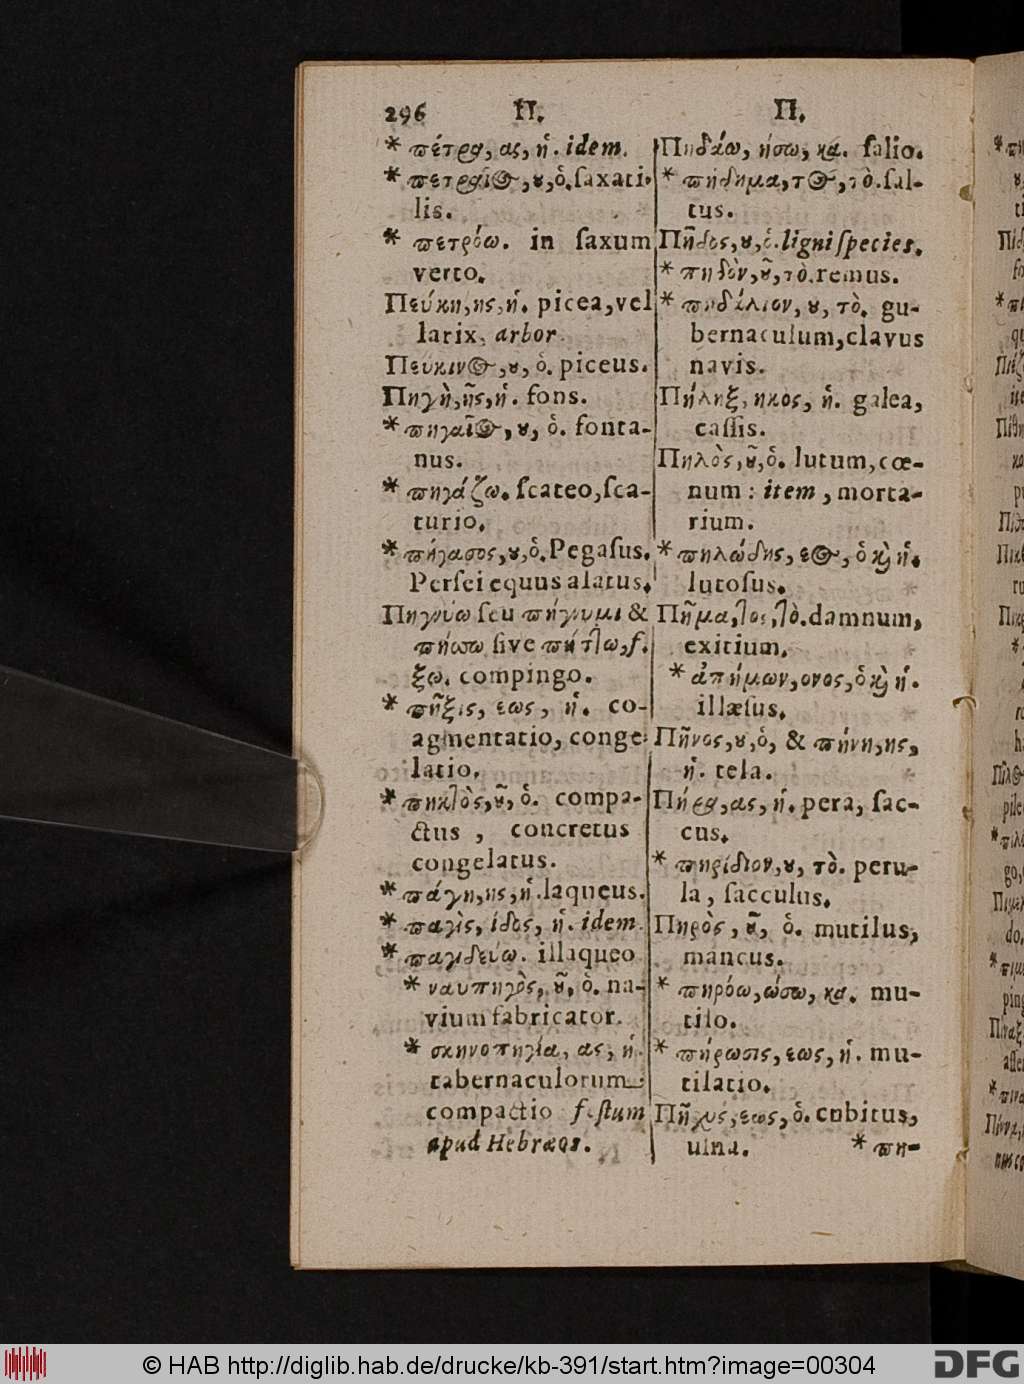 296 Π. Π.
* πέτρα, ας, ἡ. idem.
* πετραῖος, ου, ὁ. ſaxati-
lis.
* πετρόω. in ſaxum
verto.
Πεύκη, ης, ἡ. picea, vel
larix, arbor.
Πευκινος, ου, ὁ. piceus.
Πηγὴ, ῆς, ἡ. fons.
* πηγαῖος, ου, ὁ. fonta-
nus.
* πηγάζω. ſcateo, ſca-
turio.
* πήγασος, ου, ὁ. Pegaſus.
Perſei equus alatus.
Πηγνύω ſeu πήγνυμι &
πήσσω ſive πήττω, f.
ξω. compingo.
* πῆξις, εως, ἡ. co-
agmentatio, conge-
latio.
* πηκτὸς, οῦ, ὁ. compa-
ctus, concretus
congelatus.
* πάγη, ης, ἡ. laqueus.
* παγὶς, ίδος, ἡ. idem.
* παγιδεύω. illaqueo
* ναυπηγὸς, οῦ, ὁ. na-
vium fabricator.
* σκηνοπηγία, ας, ἡ.
tabernaculorum
compactio feſtum
apud Hebræos.
Πηδάω, ήσω, κα. ſalio.
* πήδημα, τος, τὸ. ſal-
tus.
Πῆδος, ου, ὁ. ligni ſpecies.
* πηδὸν, οῦ, τὸ. remus.
* πηδάλιον, ου, τὸ. gu-
bernaculum, clavus
navis.
Πήληξ, ηκος, ἡ. galea,
caſſis.
Πηλὸς, οῦ, ὁ. lutum, cœ-
num: item, morta-
rium.
* πηλώδης, εος, ὁ καὶ ἡ.
lutoſus.
Πῆμα, τος, τὸ. damnum,
exitium.
* ἀπήμων, ονος, ὁ καὶ ἡ.
illæſus.
Πῆνος, ου, ὁ, & πήνη, ης,
ἡ. tela.
Πήρα, ας, ἡ. pera, ſac-
cus.
* πηρίδιον, ου, τὸ. peru-
la, ſacculus.
Πηρὸς, οῦ, ὁ. mutilus,
mancus.
* πηρόω, ώσω, κα. mu-
tilo.
* πήρωσις, εως, ἡ. mu-
tilatio.
Πῆχυς, εως, ὁ. cubitus,
ulna. * πη-
© HAB http://diglib.hab.de/drucke/kb-391/start.htm?image=00304
DFG